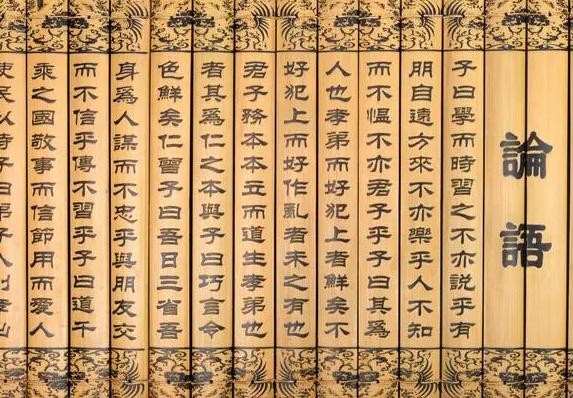 論語
子曰學而時習之不亦説乎有
朋自遠方來不亦樂乎人不知
而不愠不亦君子乎子曰其為
人也孝弟而好犯上者鮮矣不
好犯上而好作亂者未之有也
君子務本本立而道生孝弟也
者其為仁之本與子曰巧言令
色鮮矣仁曾子曰吾日三省吾
身為人謀而不忠乎與朋友交
而不信乎傳不習乎子曰道千
乘之國敬事而信節用而愛人